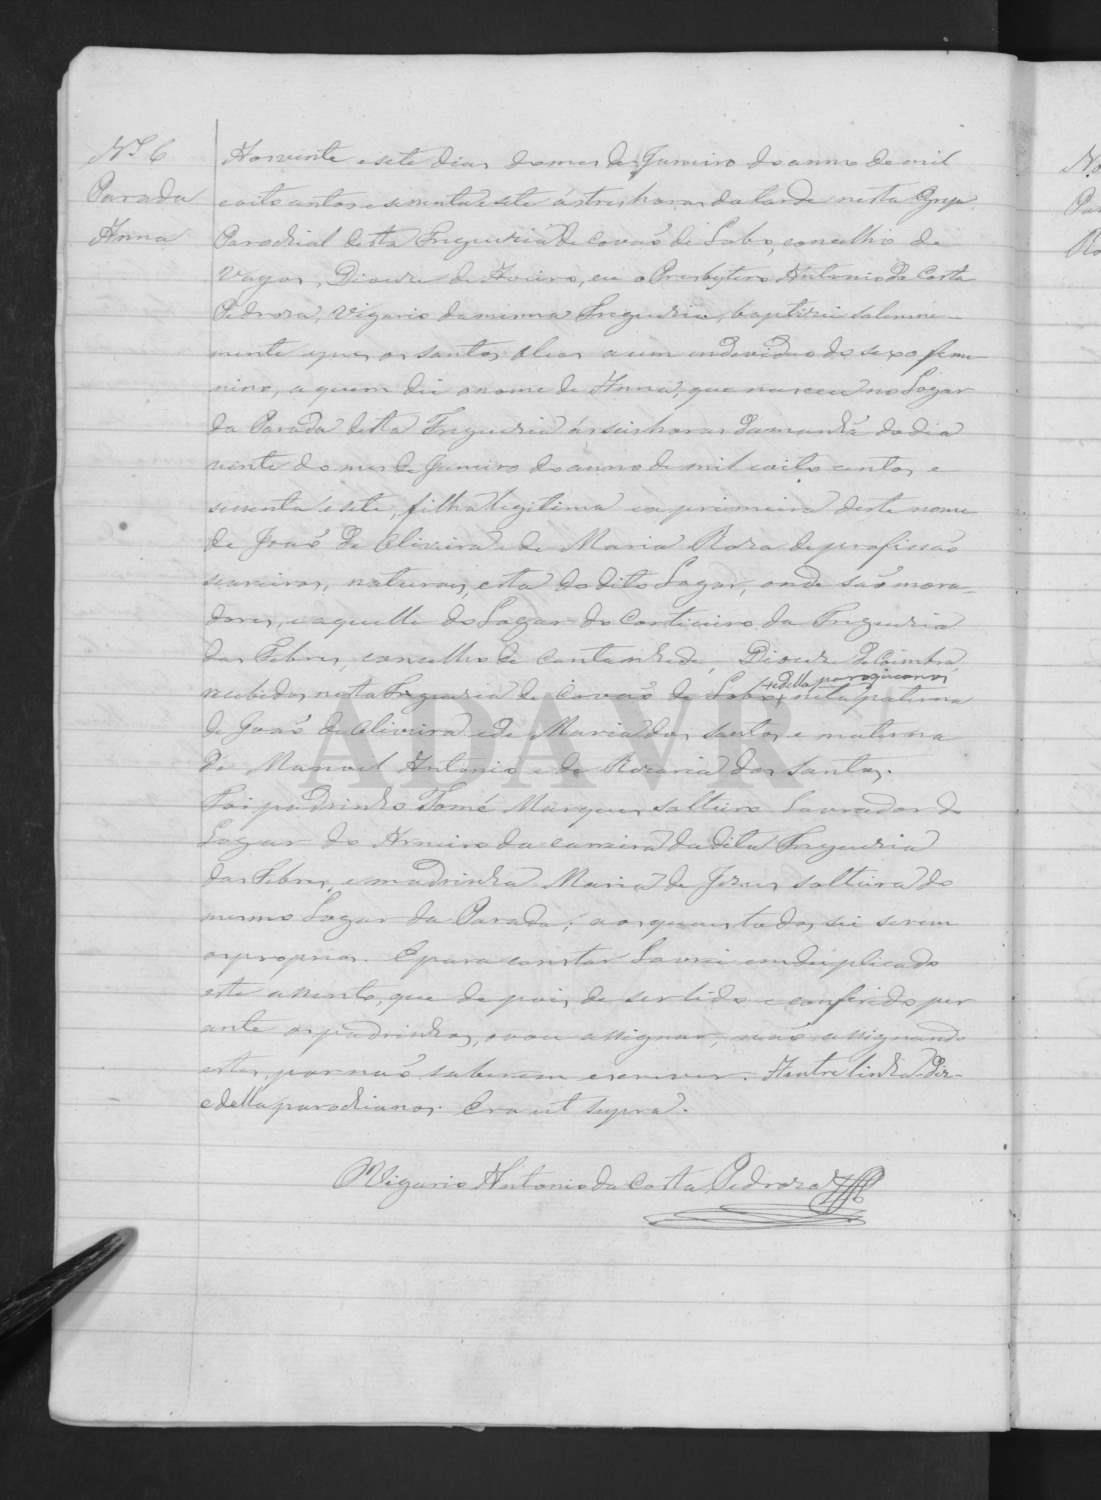 Nº 6
Parada
Anna
Aos vinte e sete dias do mes de Janeiro do anno de mil
oito centos e sessenta e sete ás tres horas da tarde nesta Egreja
Parochial desta Freguezia de Covão de Lobo, concelho de
Vagos, Diocese de Aveiro, eu o Presbytero Antonio da Costa
Pedroza, Vigario da mesma Freguezia, baptizei solemne-
mente e puz os santos oleos a um individuo do sexo femi-
nino, a quem dei o nome de Anna, que nasceu no Logar
da Parada desta Freguezia ás seis horas da manhã do dia
vinte do mes de Janeiro do anno de mil oito centos e
sessenta e sete, filha legitima e a primeira deste nome
de João de Oliveira e de Maria Roza de profissão
seareiros, naturaes, esta do dito Logar, onde são mora-
dores, e aquelle do Logar do Corticeiro da Freguezia
das Febres, concelho de Cantanhede, Diocese de Coimbra,
recebidos nesta Freguezia de Covão de Lobo, e della parochianos, neta paterna
de João de Oliveira e de Maria dos Santos, e materna
de Manoel Antonio e de Rozaria dos Santos.
Foi padrinho Tomé Marques solteiro Lavrador do
Logar do Arneiro da carreira da dita Freguezia
das Febres, e madrinha Maria de Jezus solteira do
mesmo Logar da Parada; aos quaes todos sei serem
os proprios. E para constar Lavrei em duplicado
este assento, que depois de ser lido e conferido per
ante os padrinhos, vou assignar, não assignando
estes por não saberem escrever. A entrelinha diz-
e della parochianos. Era ut supra.
O Vigario Antonio da Costa Pedroza
No
Par
Ro
ADAVR